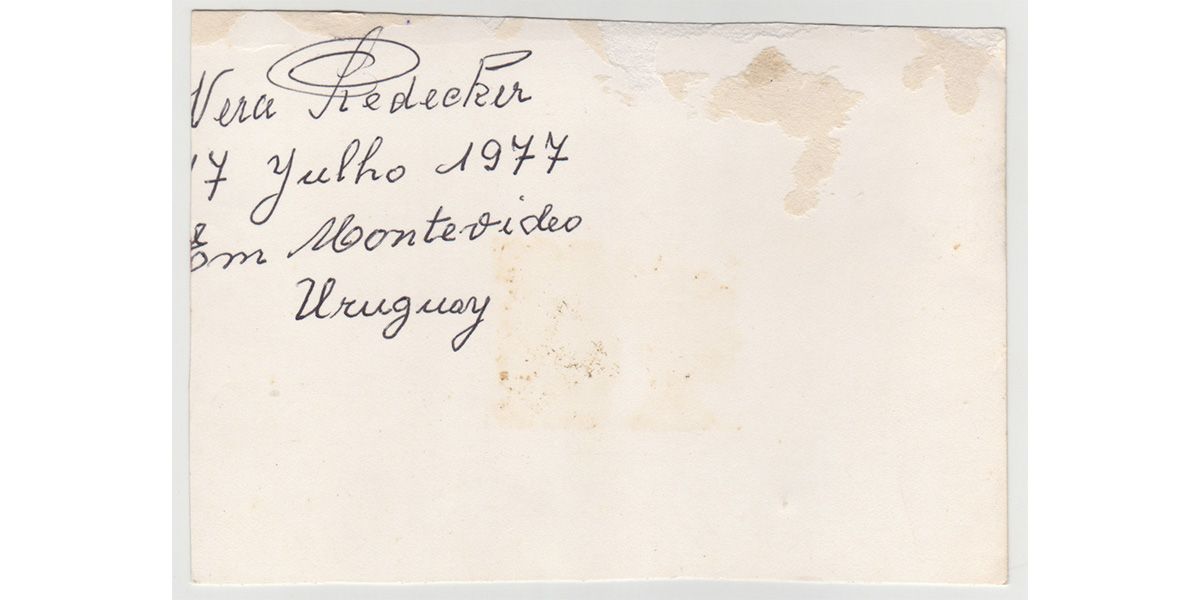 Vera Redecker
17 Julho 1977
Em Montevideo
Uruguay